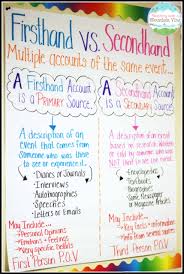 Firsthand vs. Secondhand
Multiple accounts of the same event...
A Firsthand Account
is a PRIMARY Source.
A description of an
event that comes from
someone who was there
to see or experience it...
- Diaries or Journals
- Interviews
- Autobiographies
- Speeches
- Letters or Emails
May Include...
- Personal Opinions
- Emotions + Feelings
- Very specific details
First Person P.O.V
A Secondhand Account
is a SECONDARY Source.
A description of an event
based on research
NOT
- Encyclopedias
- Textbooks
- Biographies
- Some Magazine
or Newspaper Articles
May Include...
Third Person P.O.V